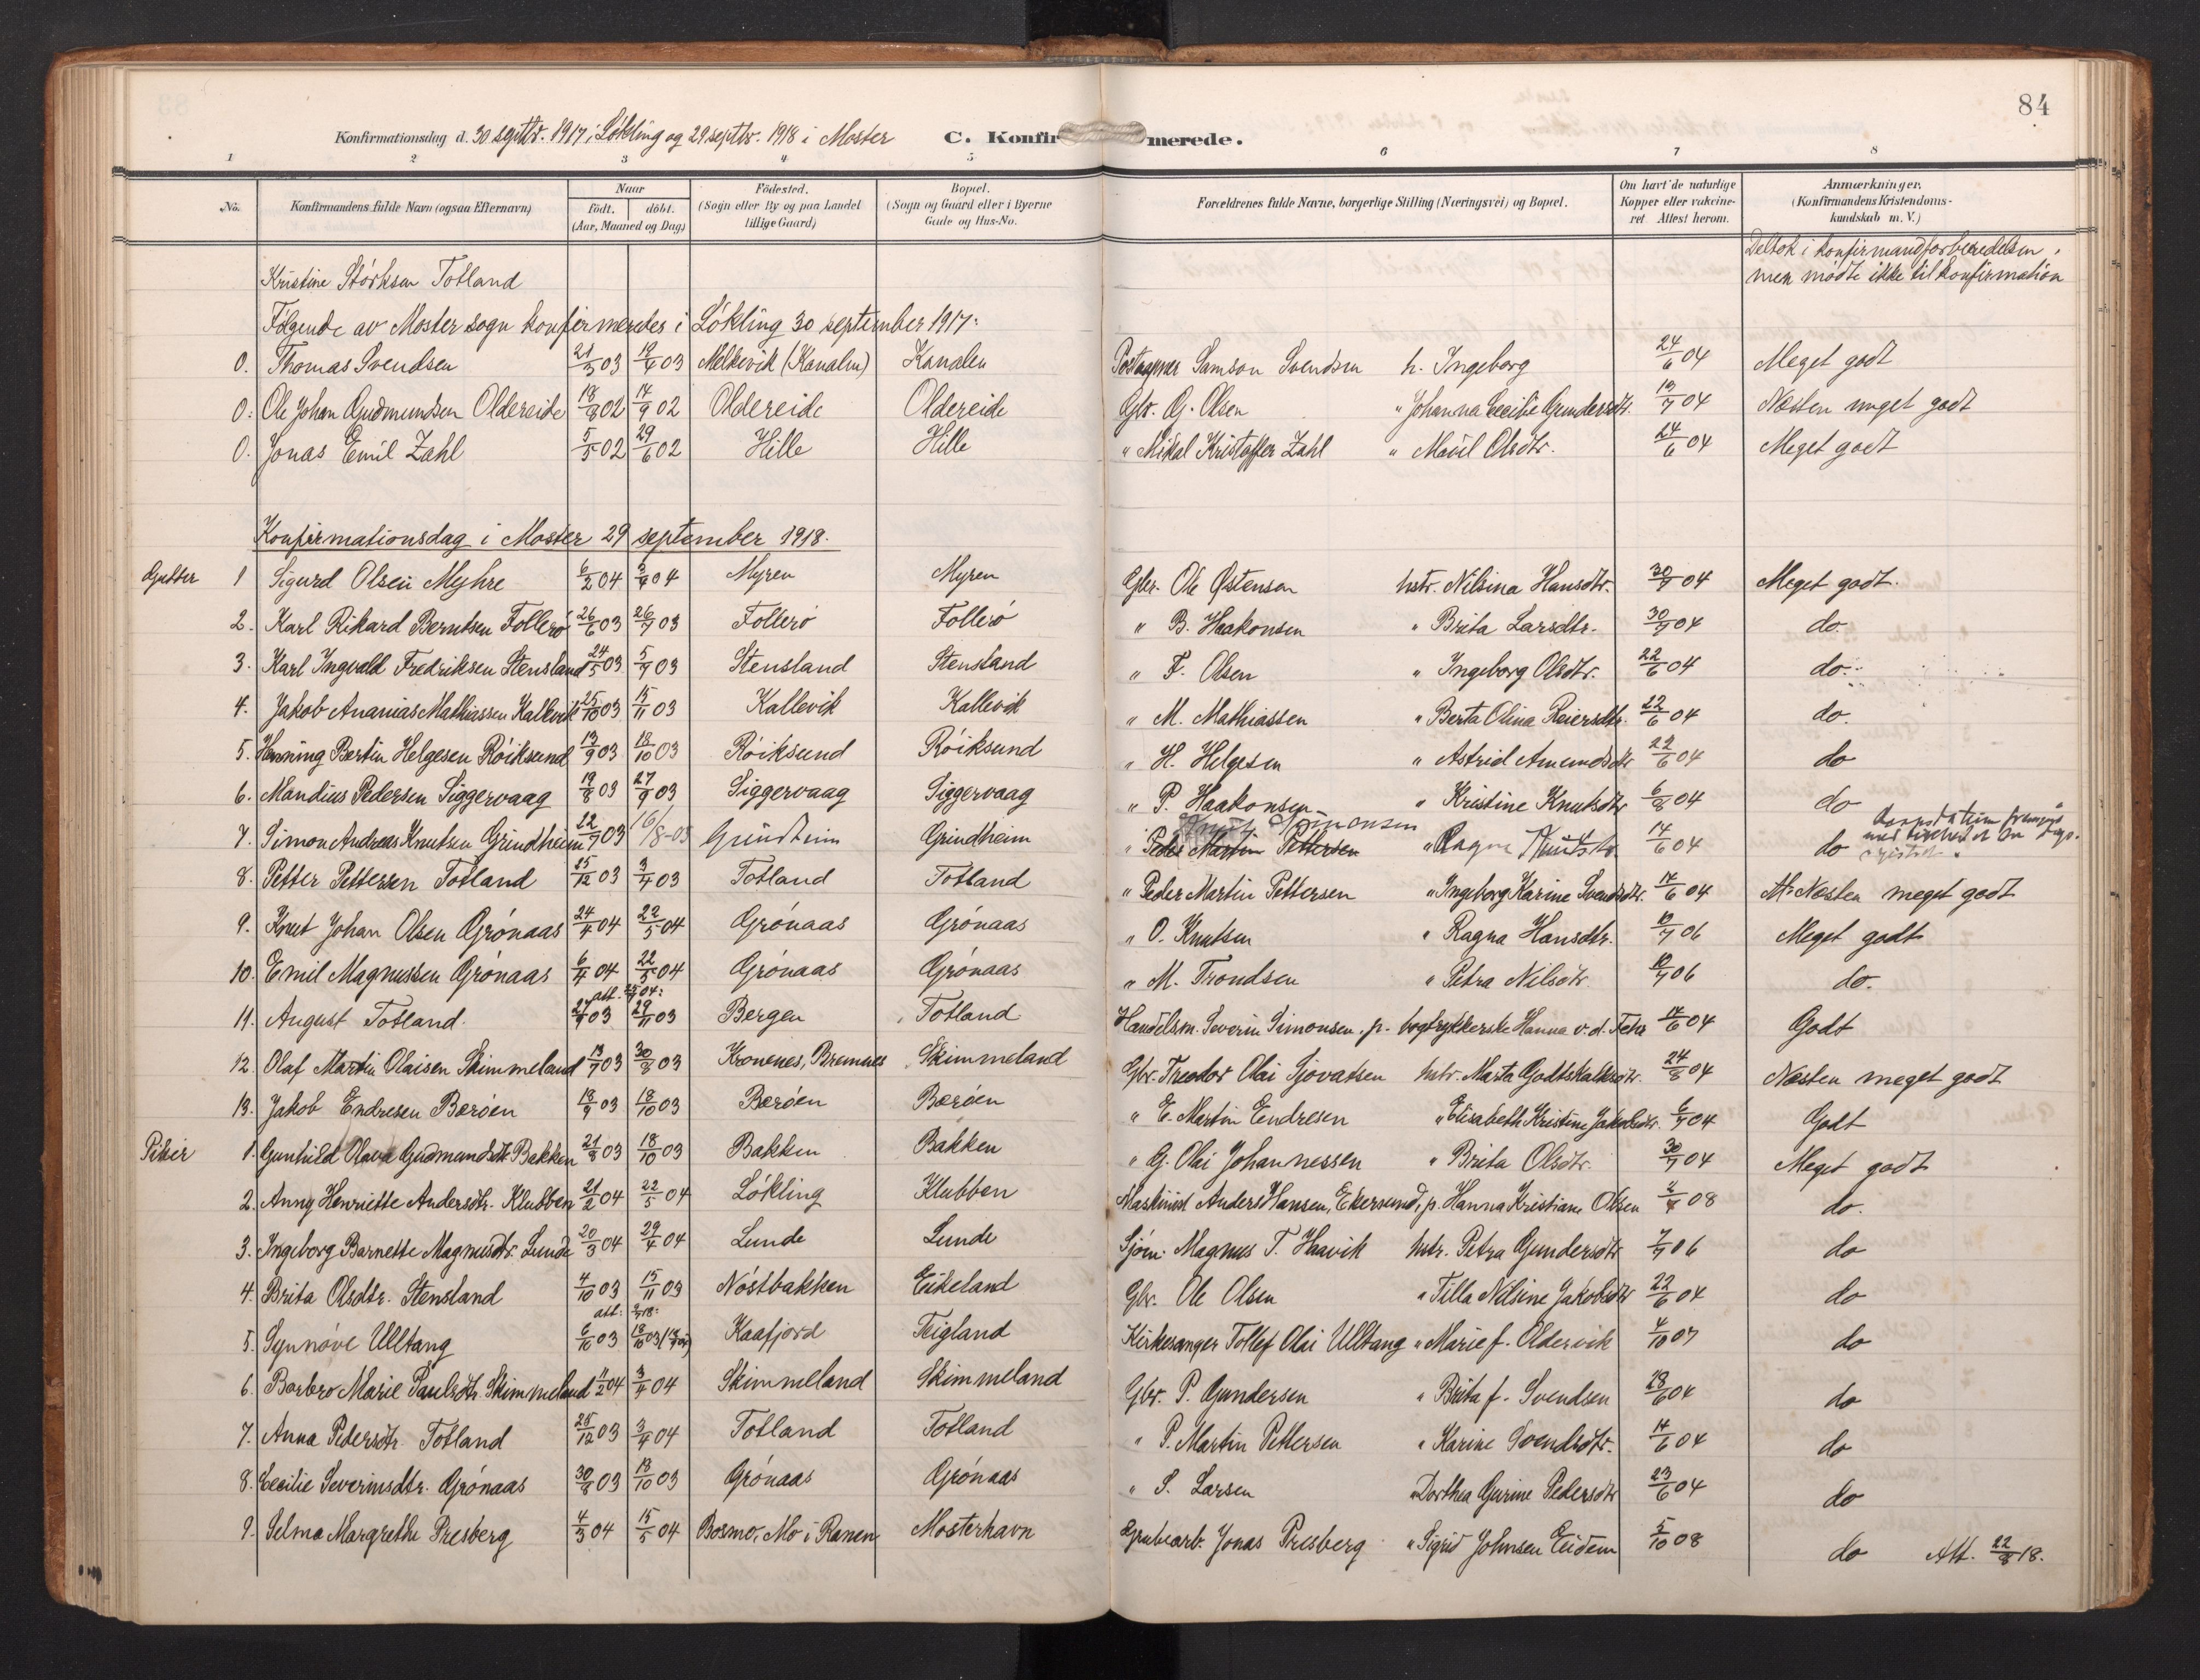 84
Konfirmationsdag d. 30 septbr. 1917 i Løkling og 29 septbr. 1918 i Moster C. Konfirmerede.
1 2 3 4 5 6 7 8
No. Konfirmandens fulde Navn (ogsaa Efternavn) Naar født. døbt. (Aar, Maaned og Dag) Fødested. (Sogn eller By og paa Landet tillige Gaard) Bopæl. (Sogn og Gaard eller i Byerne Gade og Hus-No.) Forældrenes fulde Navne, borgerlige Stilling (Næringsvei) og Bopæl. Om havt de naturlige Kopper eller vakcineret. Attest herom. Anmærkninger. (Konfirmandens Kristendomskundskab m. V.)
Kristine Størksen Totland Deltok i konfirmandforberedelsen, men mødte ikke til konfirmation
Følgende av Moster sogn konfirmertes i Løkling 30 september 1917:
0. Thomas Svendsen 21/3 03 19/4 03 Melkevik (Kanalen) Kanalen Samson Svendsen h. Ingeborg 24/6 04 Meget godt
0. Ole Johan Gudmundsen Oldereide 18/8 02 14/9 02 Oldereide Oldereide Gbr. G. Olsen " Johanna Cecilie Gundersdtr. 19/7 04 Næsten meget godt
0. Jonas Emil Zahl 5/5 02 29/6 02 Hille Hille " Mikal Kristoffer Zahl " Olsdtr. 24/6 04 Meget godt
Konfirmationsdag i Moster 29 september 1918.
Gutter 1 Sigurd Olsen Myhre 6/2 04 3/4 04 Myren Myren Gbr. Ole Østensen hstr. Nilsina Hansdtr. 30/7 04 Meget godt.
2. Karl Rikard Berntsen Follerø 26/6 03 26/7 03 Follerø Follerø " B. Haakonsen " Brita Larsdtr. 30/7 04 do.
3. Karl Ingvald Fredriksen Stensland 24/5 03 5/7 03 Stensland Stensland " F. Olsen " Ingeborg Olsdtr. 22/6 04 do.
4. Jakob Ananias Mathiassen Kallevik 25/10 03 15/11 03 Kallevik Kallevik " M. Mathiassen " Berta Olina Reiersdtr. 22/6 04 do.
5. Henning Bertin Helgesen Røiksund 13/9 03 18/10 03 Røiksund Røiksund " H. Helgesen " Astrid Amundsdtr 22/6 04 do
6. Mandius Pedersen Siggervaag 19/8 03 27/9 03 Siggervaag Siggervaag " P. Haakonsen " Kristine Knutsdtr 6/8 04 do
7. Simon Andreas Knutsen Grindheim 22/7 03 16/8-03 Grindheim Grindheim " Peder Martin Pettersen Knut Simonsen " Ragna Knutsdtr 14/6 04 do
8. Petter Pettersen Totland 25/12 03 3/4 03 Totland Totland " Peder Martin Pettersen " Ingeborg Karine Svendsdtr. 14/6 04 Næsten meget godt
9. Knut Johan Olsen Grønaas 24/4 04 22/5 04 Grønaas Grønaas " O. Knutsen " Ragna Hansdtr. 10/7 06 Meget godt
10. Emil Magnussen Grønaas 6/4 04 22/5 04 Grønaas Grønaas " M. Trondsen " Petra Nilsdtr 10/7 06 do.
11. August Totland. 27/9 03 29/11 03 Bergen Totland Handelsm. Severin Simonsen, p. bogtrykkerske Hanna v. d. Fehr 14/6 04 Godt
12. Olaf Martin Olaisen Skimmeland 13/7 03 30/8 03 Kronenes, Bremnes Skimmeland Gbr. Treodor Olai Sjovatsen hstr. Marta Godtskalksdtr. 24/8 04 Næsten meget godt
13. Jakob Endresen Børøen 18/9 03 18/10 03 Børøen Børøen " E. Martin Endresen " Elisabeth Kristine Jakobsdtr. 6/7 04 Godt
Piker 1. Gunhild Olava Gudmundsdtr Bakken 21/8 03 18/10 03 Bakken Bakken " G. Olai Johannessen " Brita Olsdtr. 30/7 04 Meget godt
2. Anny Henriette Andersdtr. Klubben 21/2 04 22/5 04 Løkling Klubben Maskinist Anders Hansen, Ekersund, p. Hanna Kristiane Olsen 08 do.
3. Ingeborg Barnette Magnusdtr. Lunde 20/3 04 29/4 04 Lunde Lunde Sjøm. Magnus T. Haavik hstr. Petra Gundersdtr 7/7 06 do
4. Brita Olsdtr. Stensland 4/10 03 15/11 03 Nøstbakken Eikeland Gbr. Ole Olsen " Tilla Nilsine Jakobsdtr 22/6 04 do
5. Synnøve Ulltang 6/10 03 Kaafjord Teigland Kirkesanger Tollef Olai Ulltang " Marie f. Oldervik 4/10 07 do
6. Barbro Marie Paulsdtr. Skimmeland 11/2 04 3/4 04 Skimmeland Skimmeland Gbr. P. Gundersen " Brita f. Svendsen 28/6 04 do
7. Anna Pedersdtr. Totland 25/12 03 3/4 04 Totland Totland " P. Martin Pettersen " Karine Svendsdtr. 14/6 04 do
8. Cecilie Severinsdtr. Grønaas 30/8 03 18/10 03 Grønaas Grønaas " S. Larsen " Dorthea Gurine Pedersdtr 23/6 04 do
9. Selma Margrethe Presberg 4/3 04 15/5 04 Bosmo, Mo i Ranen Mosterhavn Grubearb. Jonas Presberg " Sigrid Johnsen Eidem 5/10 08 do Att. 22/8 18.